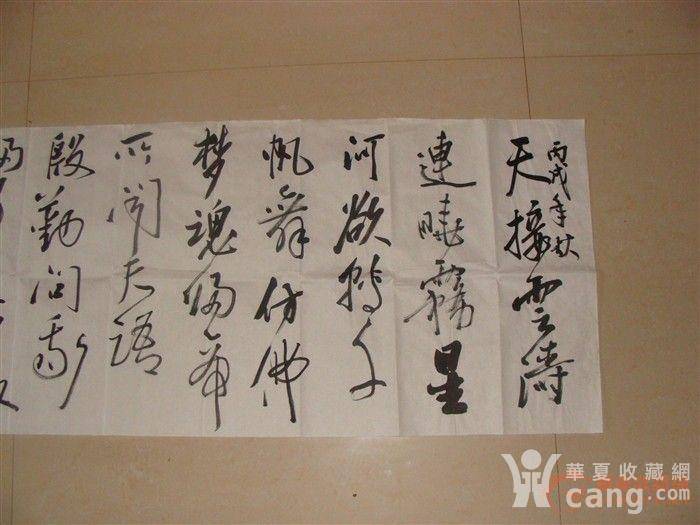 丙戌年秋
天接雲濤
連曉霧星
河欲轉千
帆舞仿佛
梦魂歸帝
所聞天語
殷勤問我
華夏收藏網
cang.com